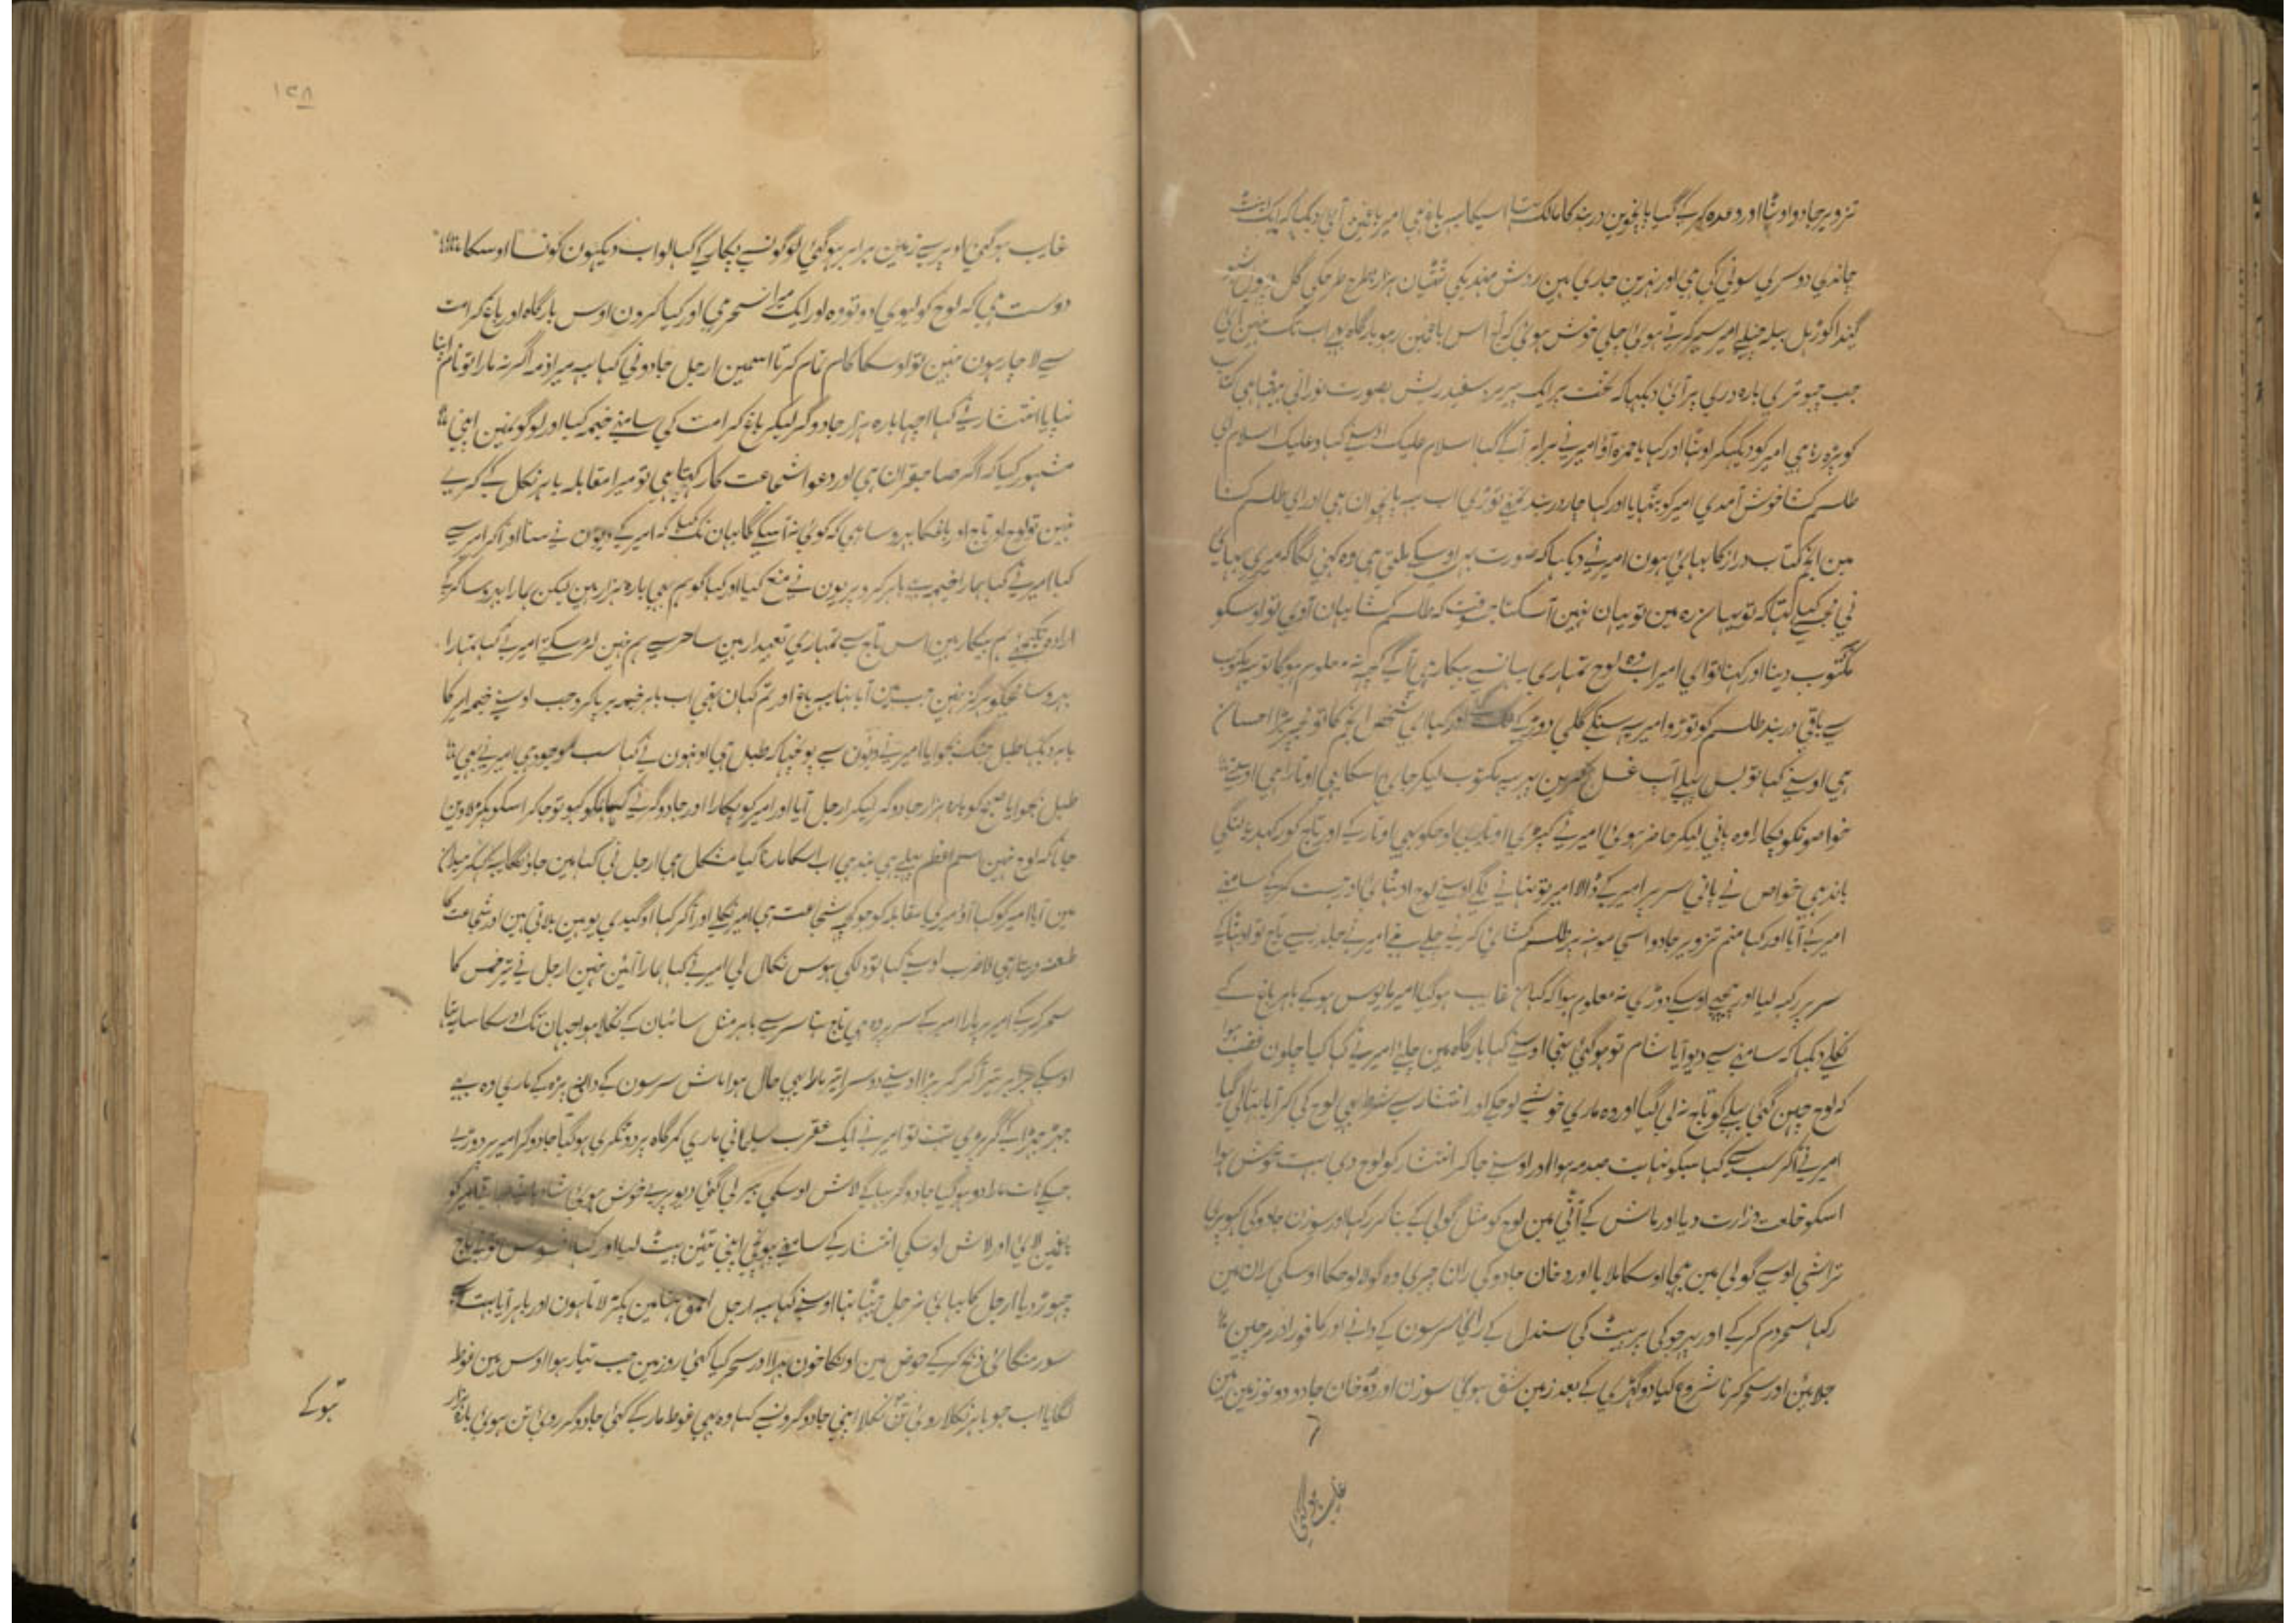 تزویر جادو اوٹھا اور وعدہ کر کے گیا پانچوین دربند کا مالک تھا اسیکا یہ باغ ہی امیر باغمین آئی دیکھا کہ ایک اینٹ
چاندی دوسری سونی کی ہی اور نہرین جاری ہین روش مہندیکی ٹٹیان ہزارہا طرح طرحکی گل
گیندا گوڑہل بیلہ چنبیلے امیر سیر کرتے ہوئی چلی خوش ہوئی کہ آج اس باغمین رہو بارگاہ ہے اب تک نہین آئی
جب چبوتری بارہ دری پر آئی دیکھا کہ تخت پر ایک پیر مرد سفید ریش بصورت نورانی بیٹھا ہی کتاب
کو پڑہ رہا ہی امیر کو دیکھکر اوٹھا اور کہا یا حمزہ آؤ امیر نے برابر آ کے کہا اسلام علیک اوسنے کہا وعلیک اسلام ای
طلسم کشا خوش آمدی امیر کو بٹھایا اور کہا چار دربند تمنے توڑی اب یہ پانچوان ہی اور ای طلسم کشا
مین انجم کتاب دراز کا بہائی ہون امیر نے دیکھا کہ صورت بہی اوسکے ملتی ہی وہ کہنی لگا کہ میری بہائی
نی مجہسے کہا تہا کہ تو یہان رہ مین تو یہان نہین آسکتا جسوقت کہ طلسم کشا یہان آوی تو اوسکو
مکتوب دینا اور کہنا تو ای امیر اب وہ لوح تمہاری یہانسے بیکار ہی آگے کچہہ نہ معلوم ہوگا تو یہ مکتوب
سے باقی دربند طلسم کو توڑو امیر یہ سنکے گلی دوڑ کے اور کہا ای شخص انجم کا تو مجہپر بڑا احسان
ہی اوسنے کہا تو بس پہلے آپ غسل کرین پہر یہ مکتوب لیکر جائی اسکا یہی اوتارا ہی اوسنے
خواصونکو پکارا وہ پانی لیکر حاضر ہوئی امیر نے کپڑی اوتاری اوحکو بہی اوتار کے اور تاج کو رکہدیا لنگی
باندہی خواص نے پانی سر پر امیر کے ڈالا امیر تو نہانی لگے اوسنے لوح اوٹھا لی اور جست کر کے سامنے
امیر کے آیا اور کہا منم تزویر جادو اسی مونہہ پر طلسم کشائی کرنے چلے تہے امیر نے جلدیسے تاج تو اوٹھا کے
سر پر رکہہ لیا اور پیچہے اوسکے دوڑی نہ معلوم ہوا کہ کہان غایب ہو گیا امیر مایوس ہو کے باہر باغ کے
نکلے دیکہا کہ سامنے سے دیو آیا شام تو ہو گئی تہی اوسنے کہا بارگاہ مین چلئے امیر نے کہا کیا چلون غضب ہوا
کہ لوح چہن گئی پہلے کو تاج نہ لی گیا اور وہ ماری خوشیکے لوحکے اور انتشار سے شرط بہی لوح کی کر آیا تہا لی گیا
امیر نے آکر سب سے کہا سبکو نہایت صدمہ ہوا اور اوسنے جا کر انتشار کو لوح دی بہت خوش ہوا
اسکو خلعت وزارت دیا اور ماش کے آٹی مین لوح کو مثل گولی کے بنا کر رکہا اور سوزن جادو کی کہوپری
تراشی اوسے گولی مین بہیجا اوسکا ملایا اور دخان جادو کی ران چیری وہ گولا لوحکا اوسکی ران مین
رکہا سحر دم کر کے اور پیر چوکی بریٹ کی سندل کے رائی سرسون کے دانے اور کافور اور مرچین
جلائین اور سحر کرنا شروع کیا دو گہڑی کے بعد زمین شق ہوئی سوزن اور دخان جادو دونو زمین مین
غایب ہو گئی
۱۲۸
غایب ہو گئی اوپر سے زمین برابر ہو گئی لوگونسے پکار کے کہا لو اب دیکہون کونسا اوسکا
دوست ہی کہ لوح کو لیوی ادو تو وہ اور ایک میرا سحر ہی اور کیا کرون اوس بارگاہ اور باغ کرامت
سے لاچار ہون نہین تو اوسکا کام تمام کرتا اسمین ارجل جادونی کہا یہ میرا ذمہ اگر نہ مارا تو نام اپنا
نپایا انتشار نے کہا اچہا بارہ ہزار جادوگر لیکر باغ کرامت کی سامنے خیمہ کیا اور لوگونمین اپنی
مشہور کیا کہ اگر صاحبقران ہی اور دعوا شجاعت کا رکہتا ہی تو میرا مقابلہ باہر نکل کے کرے
نہین تو لوح اور تاج اور باغکا بہروسا ہی کہ کوئی نہ آسکے گا یہان تک کہ امیر کے دیون نے سنا اور آکر امیر سے
کہا امیر نے کہا ہمارا خیمہ ہے باہر کرو پریون نے منع کیا اور کہا گو ہم بہی بارہ ہزار ہین لیکن ہمارا بہروسا کرکے
ارادہ نکیجئے ہم بیکار ہین اس تاج سے تمہاری تعیدار ہین ساحر سے ہم نہین لڑ سکتے امیر نے کہا تمہارا
بہروسا مجہکو ہرگز نہین جب مین آیا تہا یہ باغ اور تم کہان تہی اب باہر خیمہ برپا کرو جب اوسنے خیمہ امیر کا
باہر دیکہا طبل جنگ بجوایا امیر نے دیون سے پوچہا کہ طبل ہی اونہون نے کہا سب موجود ہی امیر نے بہی
طبل بجوایا صبح کو بارہ ہزار جادوگر لیکر ارجل آیا اور امیر کو پکارا اور جادوگرنے کہا ہمکو کہو تو جا کر اسکو پکڑ لاوین
جانا کہ لوح نہین اسم اعظم پہلے ہی بند ہی اب اسکا مارنا کیا مشکل ہی ارجل نی کہا مین جاؤنگا یہ کہکر میدان
مین آیا امیر کو کہا آؤ میری مقابلہ کو جو کچہہ شجاعت ہی امیر نکلے اور آکر کہا او گیدی یو ہین بلاتی ہین اور شجاعت کا
طعنہ دیتا ہی لا ضرب اوسنے کہا تو دلکی ہوس نکال لی امیر نے کہا ہمارا آئین نہین ارجل نے تیر خمس کا
سحر کر کے امیر پر مارا امیر کے سر پر وہ ہی تاج تہا سر سے باہر مثل سائبان کے نکلا ہوا جہان تک اوسکا سایہ تہا
اوسکے برابر تیر آکر گر پڑا اوسنے دوسرا تیر مارا یہی حال ہوا ماش سرسون کے دانے پڑہ کے ماری وہ بہی
جہڑ جہڑا کے گر پڑی تب تو امیر نے ایک عقرب سلیمانی ماری کمر گاہ پر دو ٹکری ہو گیا جادوگر امیر پر دوڑے
جسکے ہات مارا دو ہو گیا جادوگر بہاگے لاش اوسکی پہر لی گئی دیو پری خوش ہوئی
باغمین لائی اور لاش اوسکی انتشار کے سامنے پہونچی اپنی تئین پیٹ لیا اور کہا افسوس
چہوڑ دیا ارجل کا بہائی نرجل بیٹھا تہا اوسنے کہا یہ ارجل احمق تہا مین پکڑ لاتا ہون اور باہر آیا بہت
سور منگائی ذبح کر کے حوض مین اونکا خون بہرا اور سحر کیا کئی روز مین جب تیار ہوا اوس مین غوطہ
لگایا اب جو باہر نکلا روئی تن نکلا اپنی جادوگرونسے کہا وہ بہی غوطہ مار کے کئی جادوگر روئی تن ہوئی بارہ ہزار
ہو کے